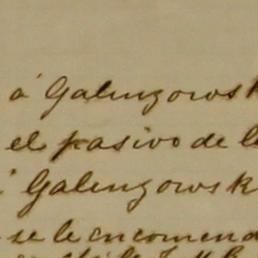 á Galenzowsk
el pasivo de l
á Galenzowsk
se le encomend